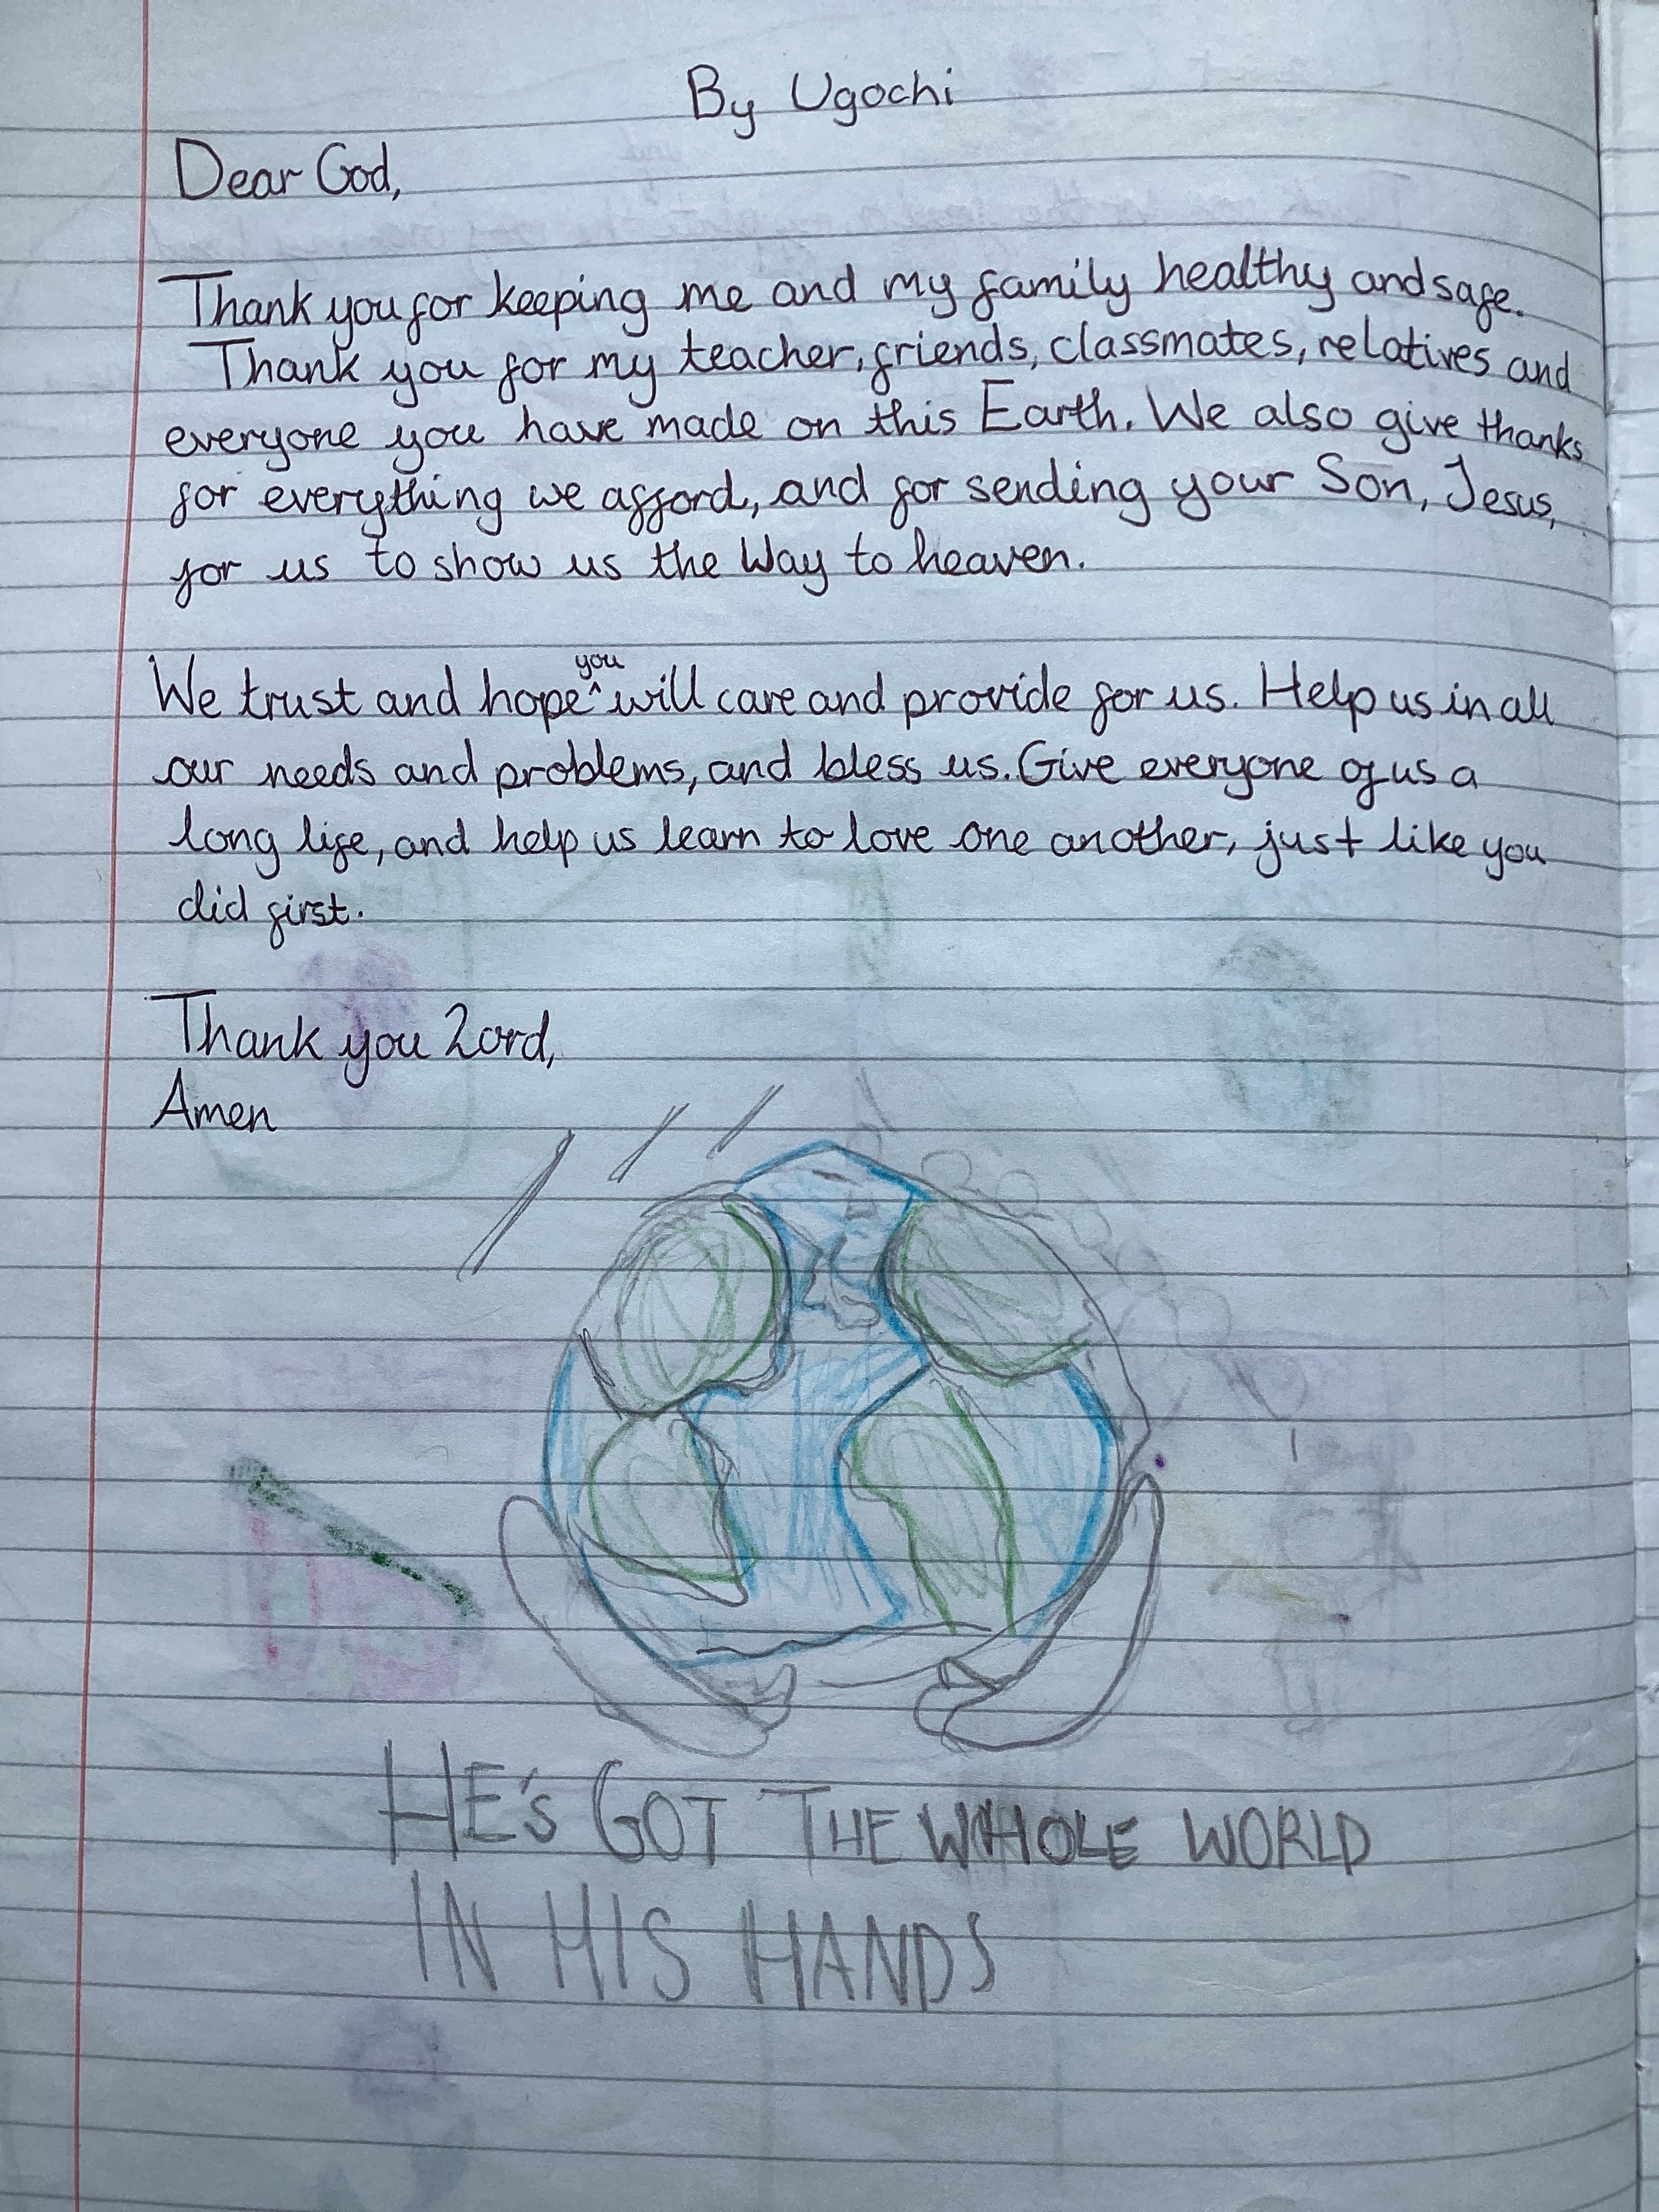 By Ugochi
Dear God,
Thank you for keeping me and my family healthy and safe.
Thank you for my teacher, friends, classmates, relatives and
everyone you have made on this Earth. We also give thanks
for everything we afford, and for sending your Son, Jesus,
for us to show us the Way to heaven.
We trust and hope ^you will care and provide for us. Help us in all
our needs and problems, and bless us. Give everyone of us a
long life, and help us learn to love one another, just like you
did first.
Thank you Lord,
Amen
HE'S GOT THE WHOLE WORLD
IN HIS HANDS